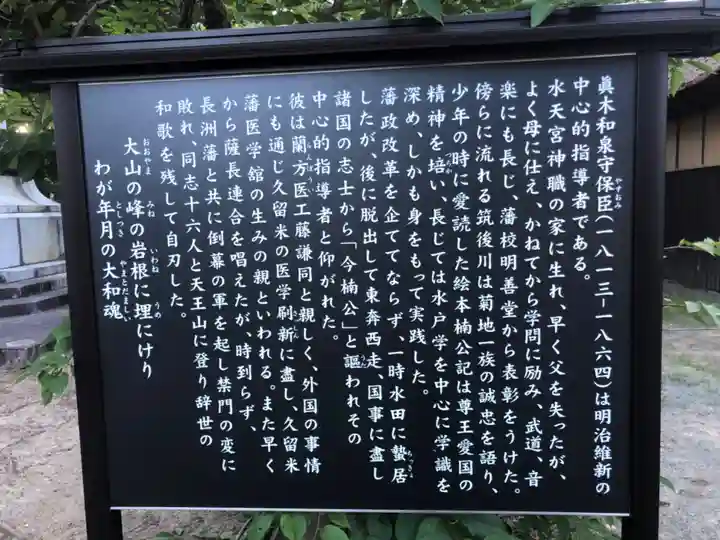 眞木和泉守保臣(一八一三ー一八六四)は明治維新の
中心的指導者である。
水天宮神職の家に生れ、早く父を失ったが、
よく母に仕え、かねてから学問に励み、武道、音
楽にも長じ、藩校明善堂から表彰をうけた。
傍らに流れる筑後川は菊地一族の誠忠を語り、
少年の時に愛読した絵本楠公記は尊王愛国の
精神を培い、長じては水戸学を中心に学識を
深め、しかも身をもって実践した。
藩政改革を企ててならず、一時水田に蟄居
したが、後に脱出して東奔西走、国事に盡し
諸国の志士から「今楠公」と謳われその
中心的指導者と仰がれた。
彼は蘭方医工藤謙同と親しく、外国の事情
にも通じ久留米の医学刷新に盡し、久留米
藩医学館の生みの親といわれる。また早く
から薩長連合を唱えたが、時到らず、
長洲藩と共に倒幕の軍を起し禁門の変に
敗れ、同志十六人と天王山に登り辞世の
和歌を残して自刃した。
大山の峰の岩根に埋にけり
わが年月の大和魂